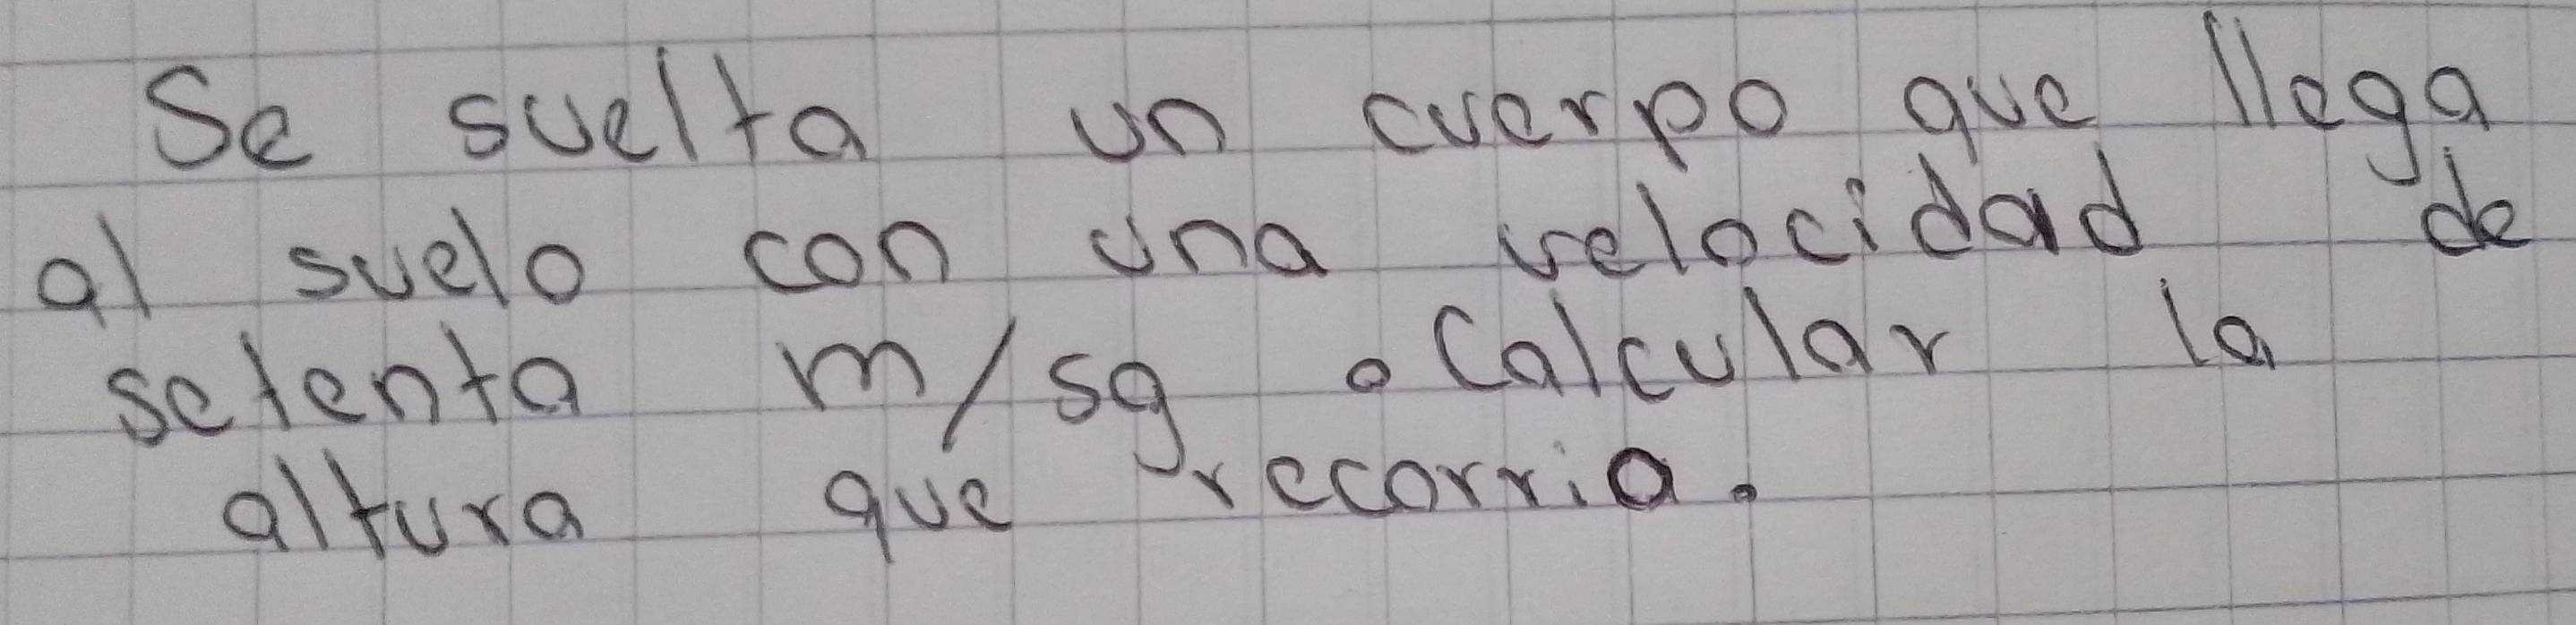 Se suelta un cuerpo que llega
al suelo con una velocidad de
setenta m/sg. Calcular la
altura que recorria.